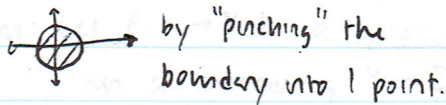 by "pinching" the
boundary into 1 point.